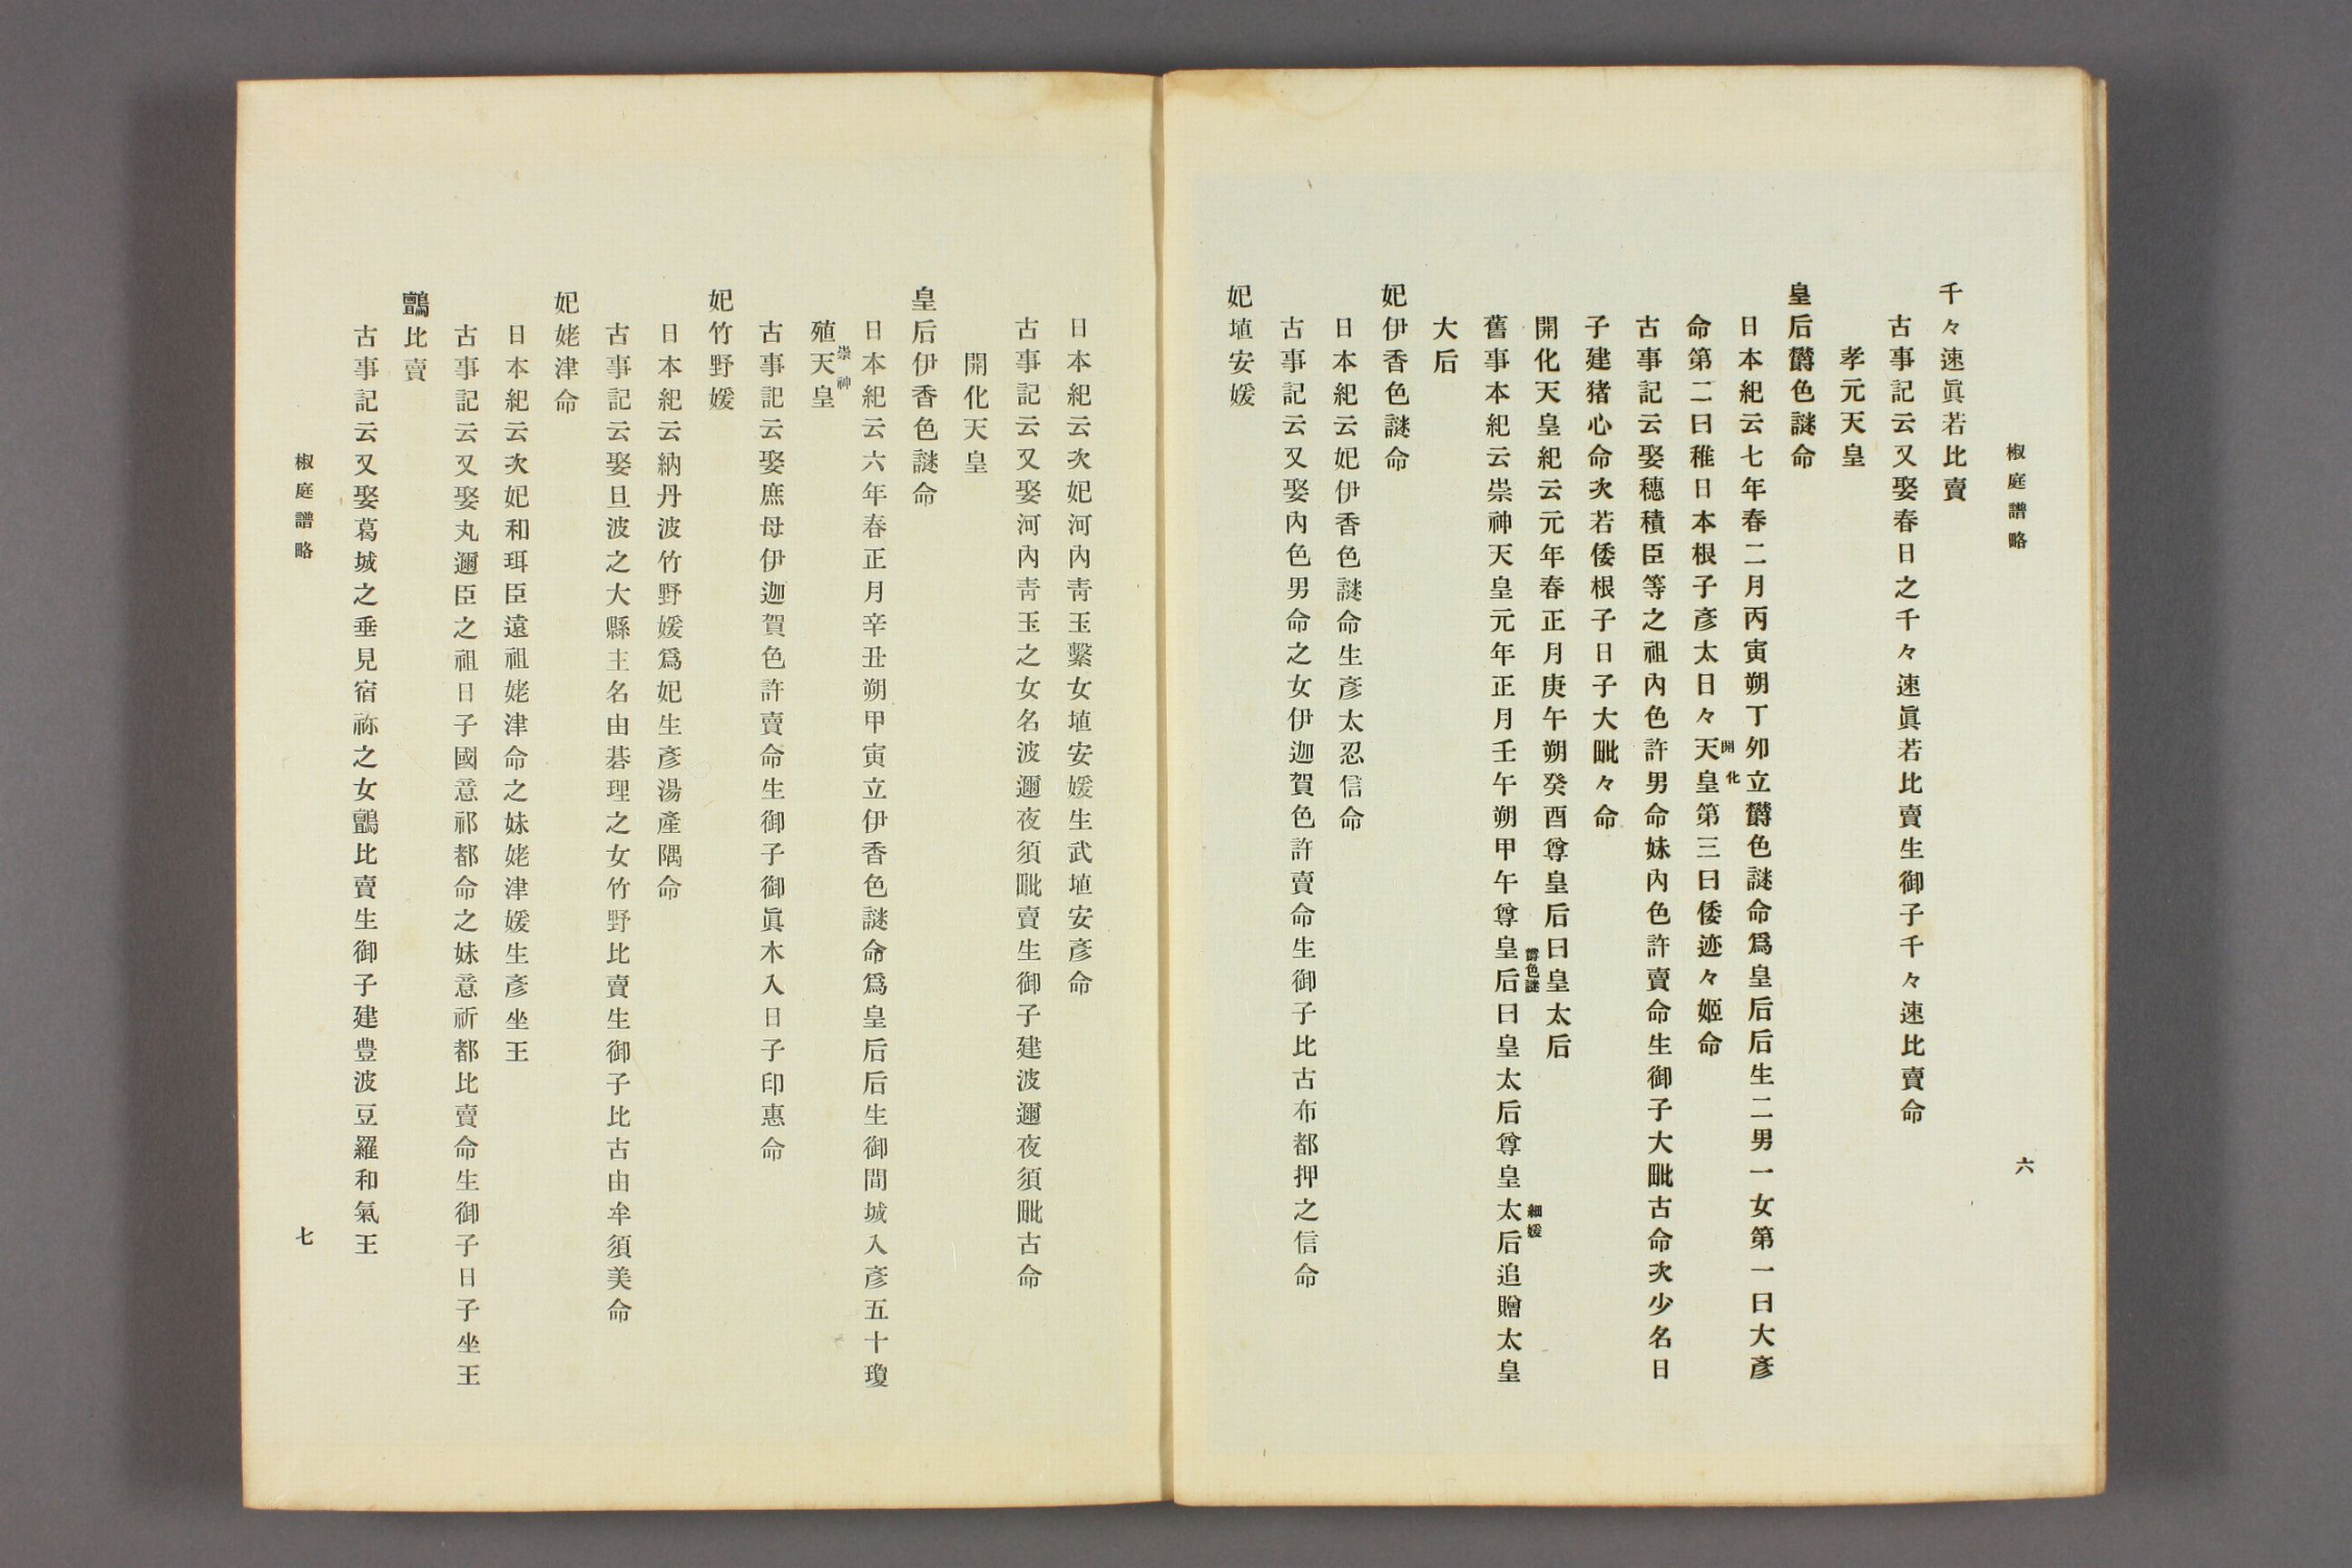 椒庭譜略
六
千々速眞若比賣
古事記云又娶春日之千々速眞若比賣生御子千々速比賣命
孝元天皇
皇后欝色謎命
日本紀云七年春二月丙寅朔丁夘立欝色謎命爲皇后后生二男一女第一曰大彥
命第二曰稚日本根子彥太日々天皇第三曰倭迹々姬命
開化
古事記云娶穗積臣等之祖內色許男命妹內色許賣命生御子大毗古命次少名日
子建猪心命次若倭根子日子大毗々命
開化天皇紀云元年春正月庚午朔癸酉尊皇后曰皇太后
舊事本紀云崇神天皇元年正月壬午朔甲午尊皇后曰皇太后尊皇太后追贈太皇
欝色謎
細媛
大后
妃伊香色謎命
日本紀云妃伊香色謎命生彥太忍信命
古事記云又娶內色男命之女伊迦賀色許賣命生御子比古布都押之信命
妃埴安媛
日本紀云次妃河內靑玉繫女埴安媛生武埴安彥命
古事記云又娶河內靑玉之女名波邇夜須毗賣生御子建波邇夜須毗古命
開化天皇
皇后伊香色謎命
日本紀云六年春正月辛丑朔甲寅立伊香色謎命爲皇后后生御間城入彥五十瓊
殖天皇
崇神
古事記云娶庶母伊迦賀色許賣命生御子御眞木入日子印惠命
妃竹野媛
日本紀云納丹波竹野媛爲妃生彥湯產隅命
古事記云娶旦波之大縣主名由碁理之女竹野比賣生御子比古由牟須美命
妃姥津命
日本紀云次妃和珥臣遠祖姥津命之妹姥津媛生彥坐王
古事記云又娶丸邇臣之祖日子國意祁都命之妹意祈都比賣命生御子日子坐王
鸇比賣
古事記云又娶葛城之垂見宿祢之女鸇比賣生御子建豊波豆羅和氣王
椒庭譜略
七